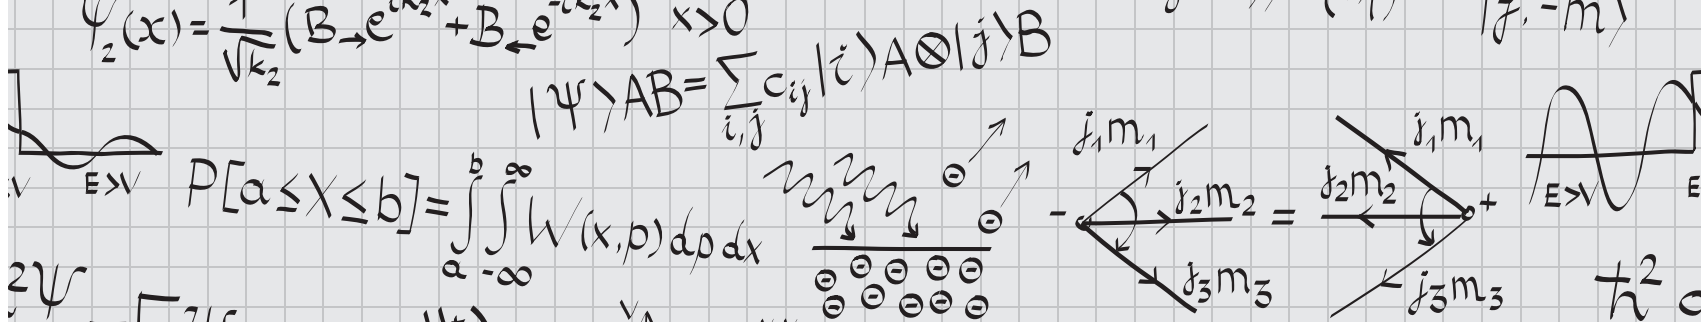 ψ₂(x) = 1/√k₂ (B→e^{ik₂x} + B←e^{-ik₂x}) x>0
|j, -m⟩
|Ψ⟩AB = ∑_{i,j} c_{ij} |i⟩A⊗|j⟩B
E>V
P[a≤X≤b] = ∫_a^b ∫_{-∞}^{∞} W(x,p) dp dx
⊖ ⊖
⊖ ⊖ ⊖ ⊖ ⊖
⊖ ⊖ ⊖ ⊖ ⊖
j₁m₁
- j₂m₂ =
j₃m₃
j₁m₁
j₂m₂ +
j₃m₃
E>V
E
2Ψ
ħ²